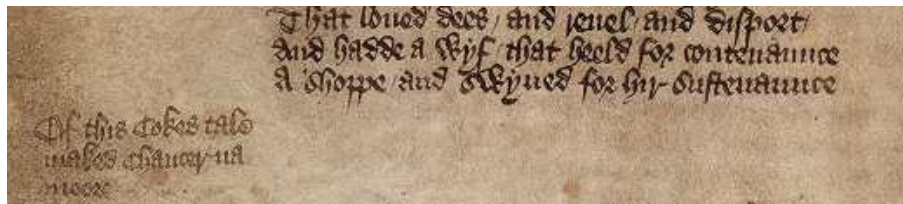 That loued dees / and reuel / and disport /
And hadde a wyf / that heeld for contenaunce
A shoppe / and swyued for hir sustenaunce
Of this Cokes tale
maked Chaucer na
moore